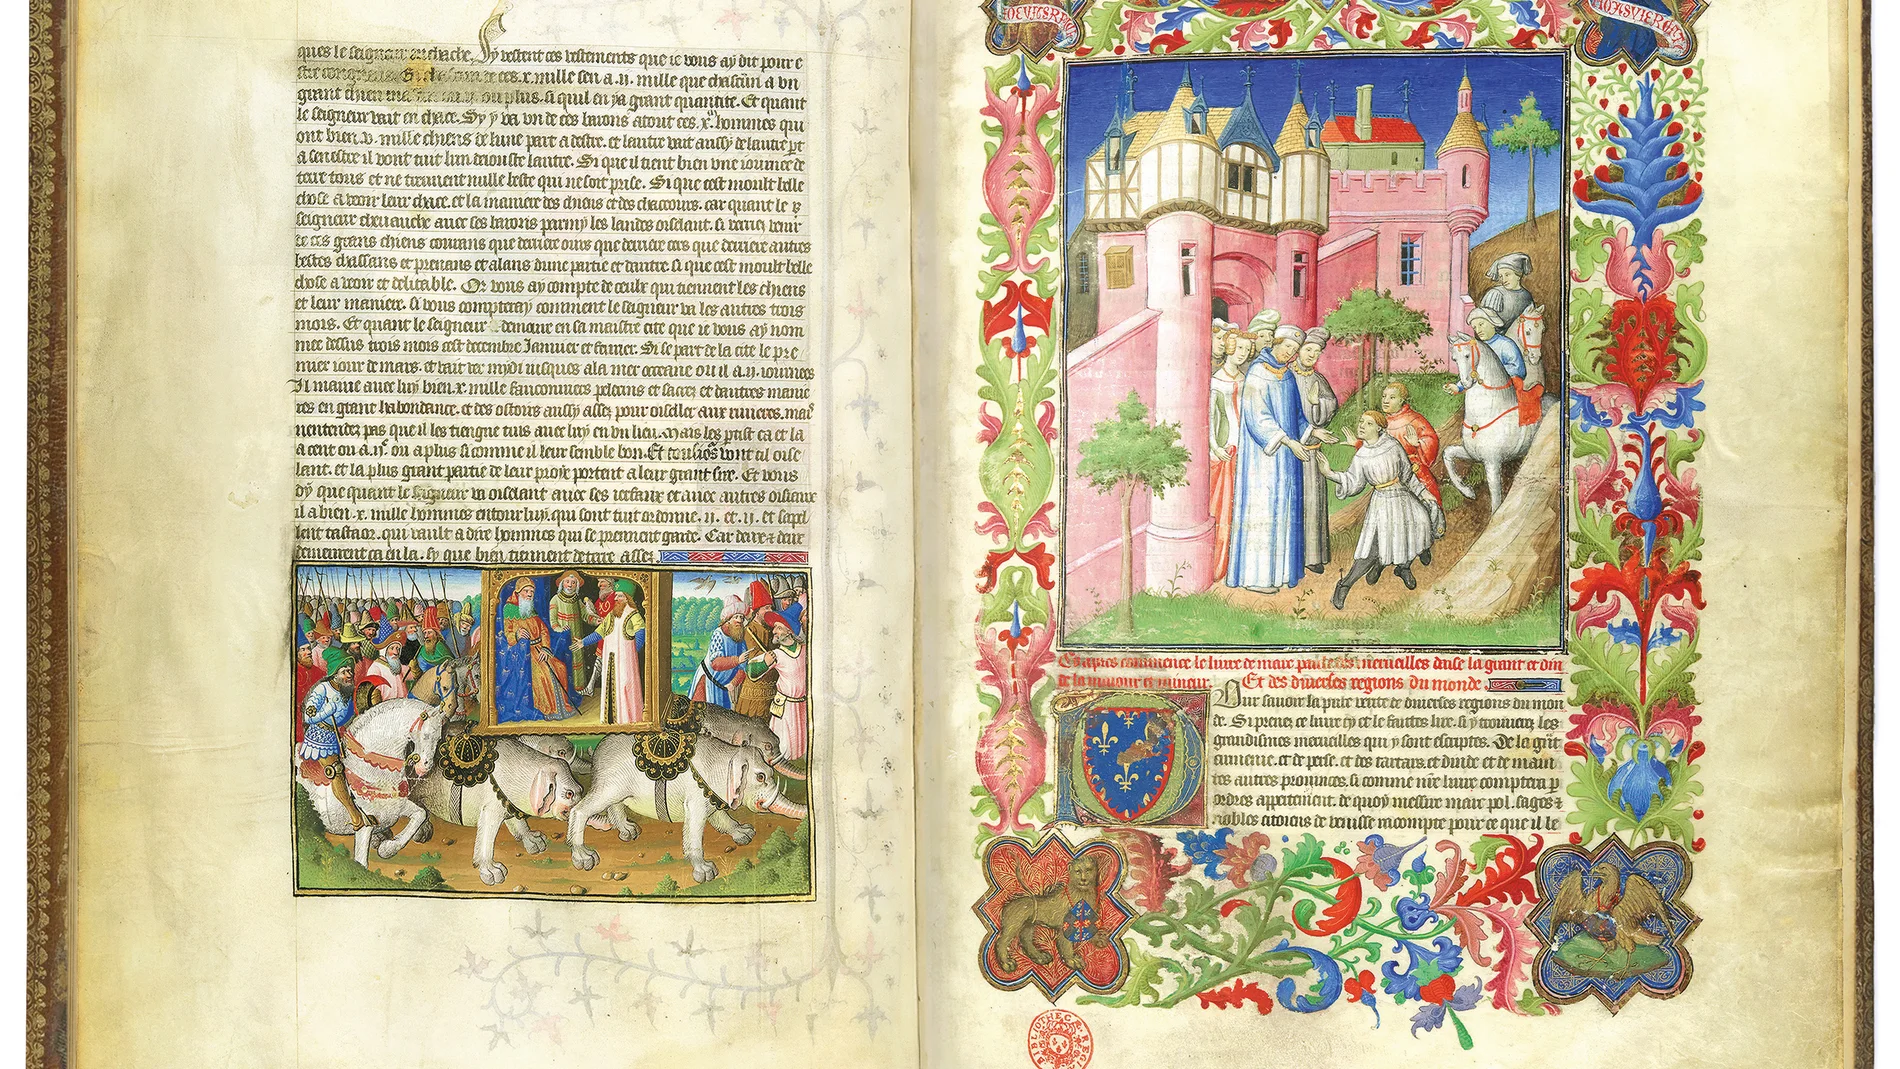 ques le seigneur en chache, Sy vestent ces vestements que ie vous ay dit pour e
ces .x. mille sen a .ii. mille que chascun a vn
grant chien ou plus. si quil en ya grant quantite. Et quant
le seigneur vait en chace. Sy y va vn de ces barons atout ces .x. hommes qui
ont bien .v. mille chiens de lune part a destre. et lautre vait aussy de lautre pt
a senestre il vont tuit lun deiouste lautre. Si que il tient bien vne iournee de
terre tous et ne tieuuent nulle beste qui ne soit prise. Si que cest moult belle
chose a veoir leur chace. et la maniere des chiens et des chaceours. car quant le
seigneur cheuauche auec ses barons parmy les landes oiselant. si verriez venir
de ces grans chiens courans que derriere ours que derriere cers que derriere autres
bestes chassans et prenans et alans dune partie et dautre. si que cest moult belle
chose a veoir et delitable. Or vous ay compte de ceulx qui tiennent les chiens
et leur maniere. si vous compteray comment le seigneur va les autres trois
mois. Et quant le seigneur demoure en sa maistre cite que ie vous ay nom
mee dessus trois mois cest decembre Januier et feurier. Si se part de la cite le pre
mier iour de mars. et vait vers mydi iusques ala mer occeane ou il a .ii. iournees
Il maine auec luy bien .x. mille fauconniers pelerins et sacres et dautres manie
res en grant habondance. et des ostoirs aussy assez pour oiseller aux riuieres. mais
nentendez pas que il les tiengne tuis auec luy en vn lieu. Mais les ptist ca et la
a cent ou a .ii. ou a plus si comme il leur semble bon. Et tousiours vont til oise
lant. et la plus grant partie de leur proie portent a leur grant sire. Et vous
dy que quant le seigneur va oiselant auec ses ierfaux et auec autres oiseaux
il a bien .x. mille hommes entour luy. qui sont tuit ordonne .ii. et .ii. et sapel
lent tastaor. qui vault a dire hommes qui se prennent garde. Car deux et deux
demeurent ca en la. sy que bien tiennent de terre assez.
Cy apres commence le liure de marc merueilles daise la grant et din
de la maiour et mineur. Et des diuerses regions du monde
Pour sauoir la pure verite de diuerses regions du mon
de. Si prenez ce liure cy et le faittes lire. si y trouuerez les
grandismes merueilles qui y sont escriptes. De la grãt
armenie. et de perse. et des tartars. et dinde et de main
tes autres prouinces. si comme nre liure comptera p
ordres appertement. de quoy messire marc pol. sages et
nobles citoiens de venisse racompte pour ce que il le
BIBLIOTHECÆ REGIÆ